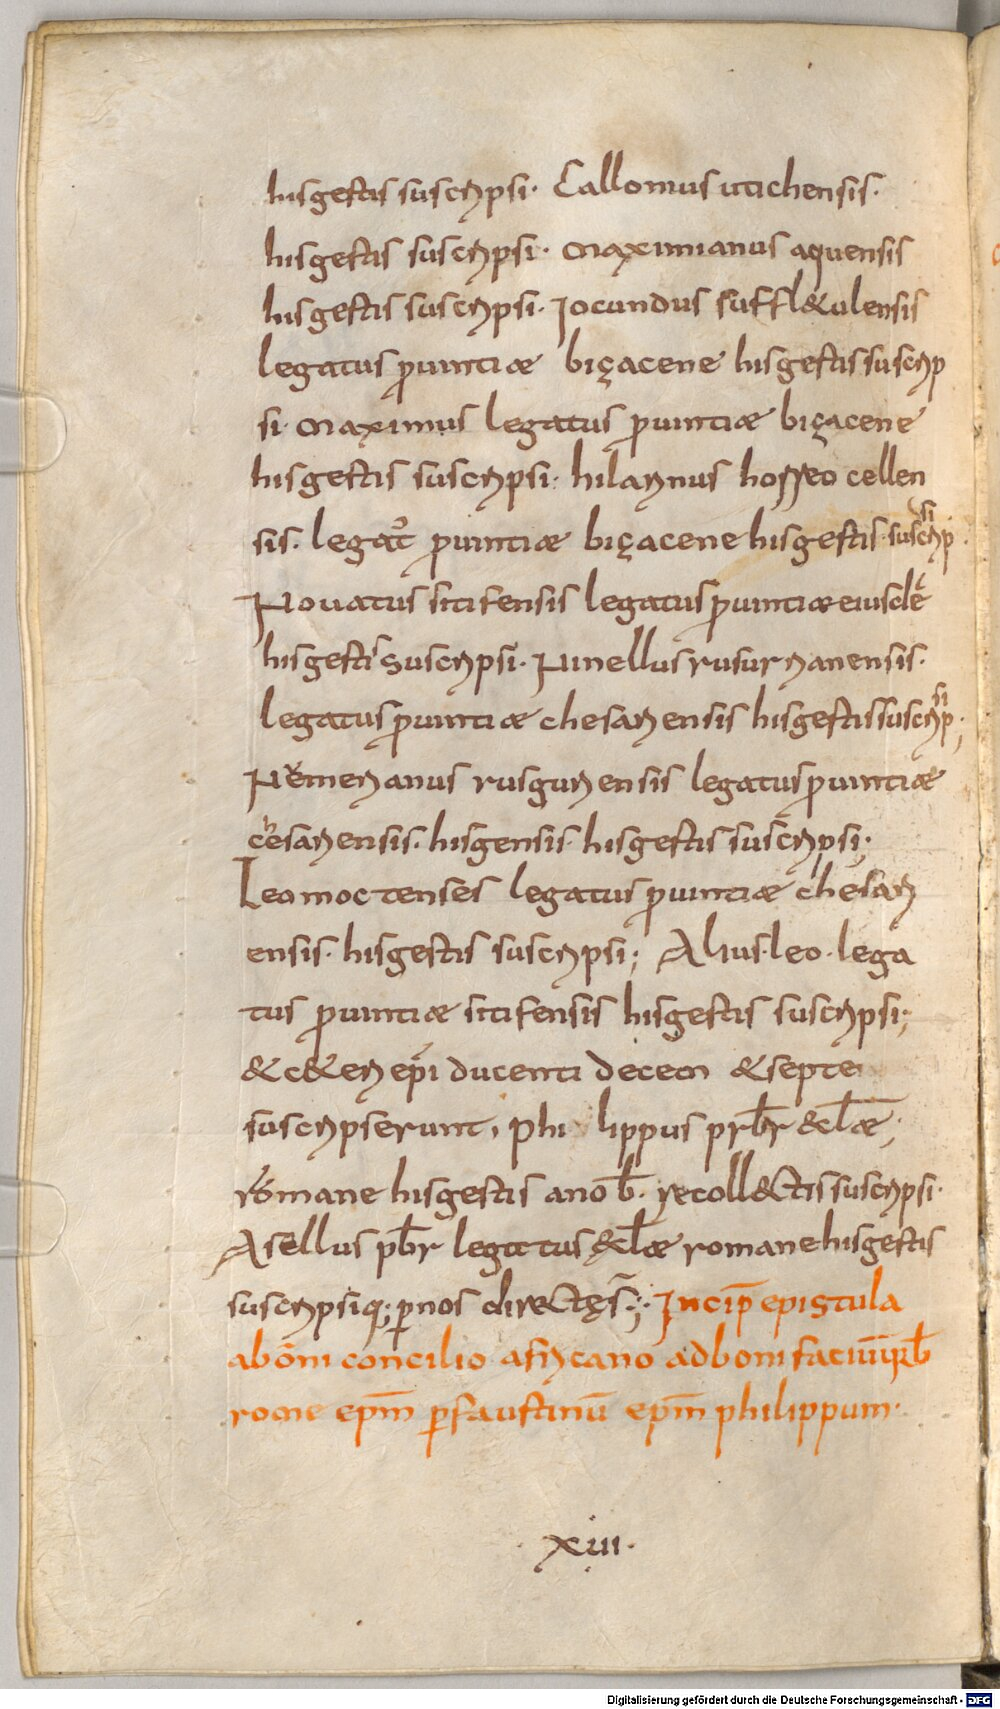 hisgestis suscripsi· Gallonius utichensis·
hisgestis suscripsi· Maximianus aquensis
hisgestis suscripsi· Jocundus suffl&ulensis
legatus prouintiæ biçacene hisgestis suscrip
si· Maximus legatus prouintiæ biçacene
hisgestis suscripsi· hilarinus horreo cellen
sis· legat᾽ prouintiæ biçacene hisgestis· suscripsi·
Nouatus sitifensis legatus prouintiæ eiusdē
hisgestis suscripsi· Ninellus rusurrianensis·
legatus prouintiæ chesariensis hisgestis suscripsi;
Numerianus rusguriensis legatus prouintiæ
chesariensis· hisgensis· hisgestis suscripsi;
Leo moctenses legatus prouintiæ chesari
ensis· hisgestis suscripsi; Alius· leo· lega
tus prouintiæ sitifensis hisgestis suscripsi;
& c&eri epi̅ ducenti decem &septe
suscripserunt, Phi lippus prb̅r &cl̅æ;
romane hisgestis ano b̅· recoll&ctis suscripsi·
Asellus pb̅r legatus &cl̅æ romane hisgestis
suscripsi q; p nos directęs̅;· Incip̅ epistula
ab om̅i concilio africano ad bonifaciu̅ urb̅
rome epm̅ p faustinu̅ epm̅ philippum·
·xiii·
Digitalisierung gefördert durch die Deutsche Forschungsgemeinschaft - DFG